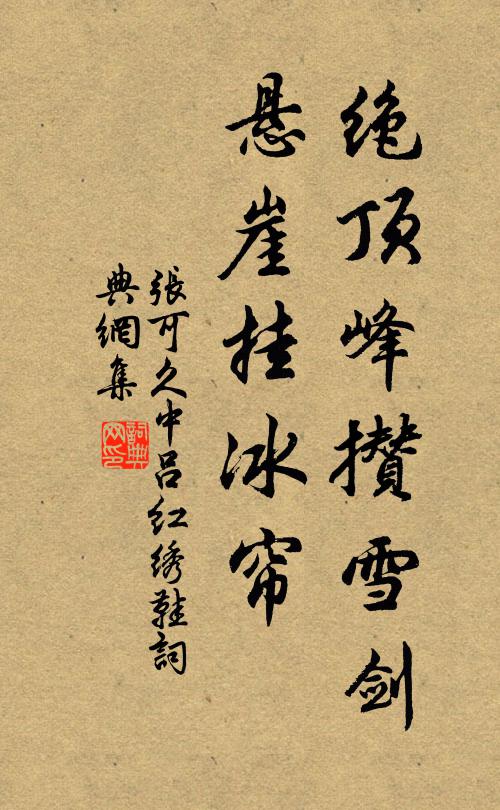 绝顶峰攒雪剑
悬崖挂冰帘
張可久中吕红绣鞋詞
典網集
詞典
网印